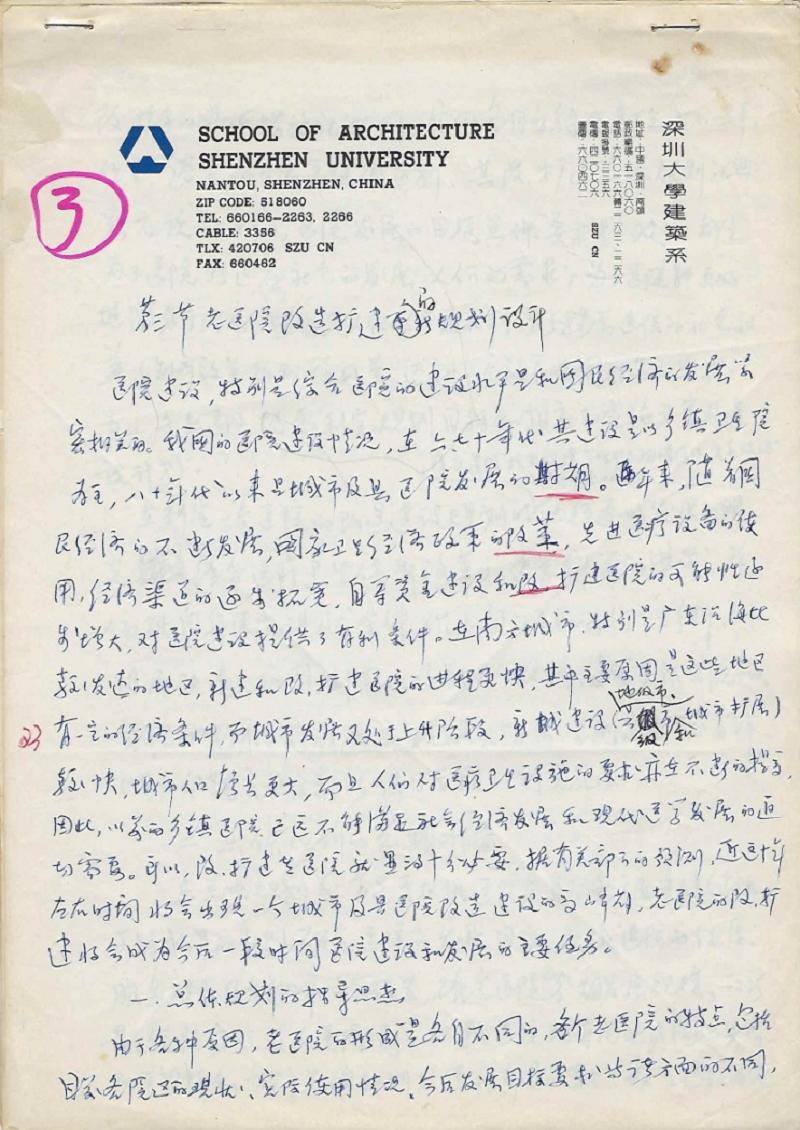 SCHOOL OF ARCHITECTURE
SHENZHEN UNIVERSITY
NANTOU, SHENZHEN, CHINA
ZIP CODE: 518060
TEL: 660166-2263, 2266
CABLE: 3356
TLX: 420706 SZU CN
FAX: 660462
深圳大學建築系
地址·中國·深圳·南頭
郵政編碼·五一八〇六〇
電話·六六〇一六六轉二二六三·二二六六
電報掛號·三三五六
電傳·四二〇七〇六 SZU CN
圖傳·六六〇四六二
3
第三节 老医院改造扩建的规划设计
医院建设，特别是综合医院的建设水平是和国民经济的发展紧
密相关的。我国的医院建设情况，在六七十年代其建设是以乡镇卫生院
为主，八十年代以来是城市及县医院发展的时期。近年来，随着国
民经济的不断发展，国家卫生经济政策的改革，先进医疗设备的使
用，经济渠道的逐步拓宽，自筹资金建设和改、扩建医院的可能性逐
步增大，对医院建设提供了有利条件。在南方城市，特别是广东沿海比
较发达的地区，新建和改、扩建医院的进程更快，其中主要原因是这些地区
23
有一定的经济条件，而城市发展又处于上升阶段，新城建设（地级市、 城市扩展）
较快，城市人口增长更大，而且人们对医疗卫生设施的要求亦在不断的提高，
因此，以前的乡镇医院已远不能满足社会经济发展和现代医学发展的迫
切需要。所以，改、扩建老医院就显得十分必要，据有关部门的预测，近这十年
左右时间将会出现一个城市及县医院改造建设的高峰期，老医院的改、扩
建将会成为今后一段时间医院建设和发展的主要任务。
一、总体规划的指导思想
由于各种原因，老医院的形成是各自不同的，每个老医院的特点，包括
目前各院区的现状、实际使用情况、今后发展目标要求等诸方面的不同，